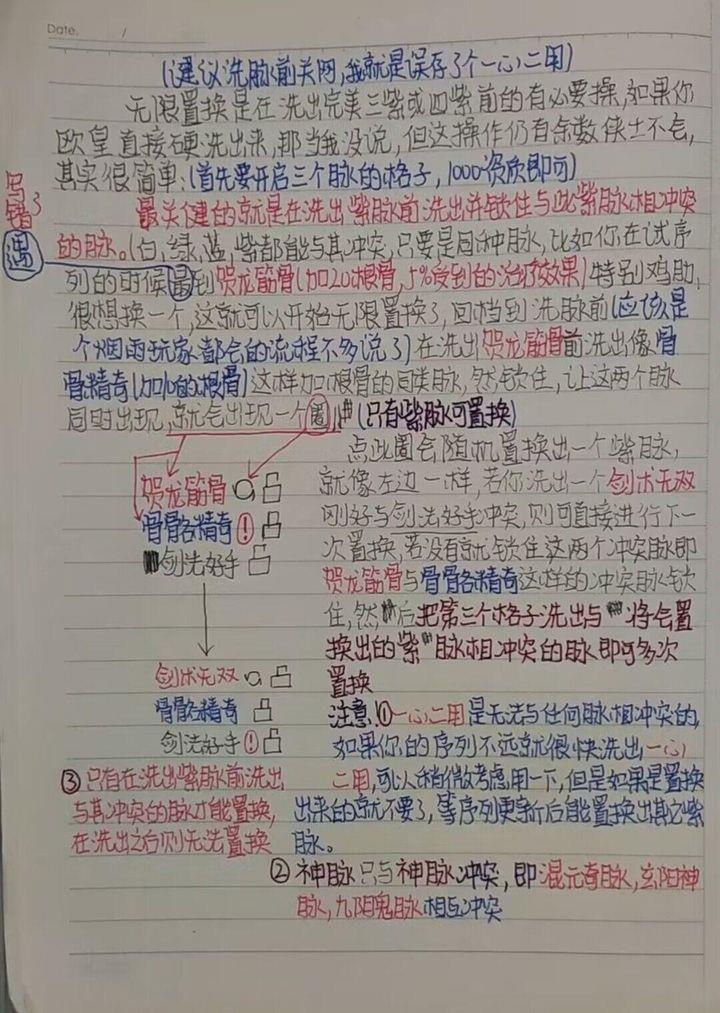 Date.
(建议洗脉前关网,我就是误存了个一心二用)
无限置换是在洗出完美三紫或四紫前的有必要操,如果你
欧皇直接硬洗出来,那当我没说,但这操作仍有余数侠士不会,
其实很简单:(首先要开启三个脉的格子,1000资质即可)
写错了
最关健的就是在洗出紫脉前洗出并锁住与此紫脉相冲突
遇
的脉。(白,绿,蓝,紫都能与其冲突,只要是同种脉,比如你在试序
列的时候最到贺龙筋骨(加20根骨,5%受到的治疗效果)特别鸡肋,
很想换一个,这就可以开始无限置换了,回档到洗脉前(应该是
个烟雨玩家都会的流程不多说了)在洗出贺龙筋骨前洗出像骨
骨精奇(加10的根骨)这样加根骨的同类脉,然锁住,让这两个脉
同时出现,就会出现一个圈,(只有紫脉可置换)
点此圈会随机置换出一个紫脉,
就像左边一样,若你洗出一个剑术无双
刚好与剑法好手冲突,则可直接进行下一
次置换,若没有就锁住这两个冲突脉即
贺龙筋骨与骨骼精奇这样的冲突脉锁
住,然后把第三个格子洗出与将会置
换出的紫脉相冲突的脉即可多次
置换
贺龙筋骨
骨骼精奇!
剑法好手
剑术无双
骨骼精奇
剑法好手!
注意:①一心二用是无法与任何脉相冲突的,
如果你的序列不远就很快洗出一心
二用,可以稍微考虑用一下,但是如果是置换
出来的就不要了,等序列更新后能置换出其它紫
脉。
③只有在洗出紫脉前洗出
与其冲突的脉才能置换,
在洗出之后则无法置换
②神脉只与神脉冲突,即混元奇脉,玄阳神
脉,九阴鬼脉相互冲突